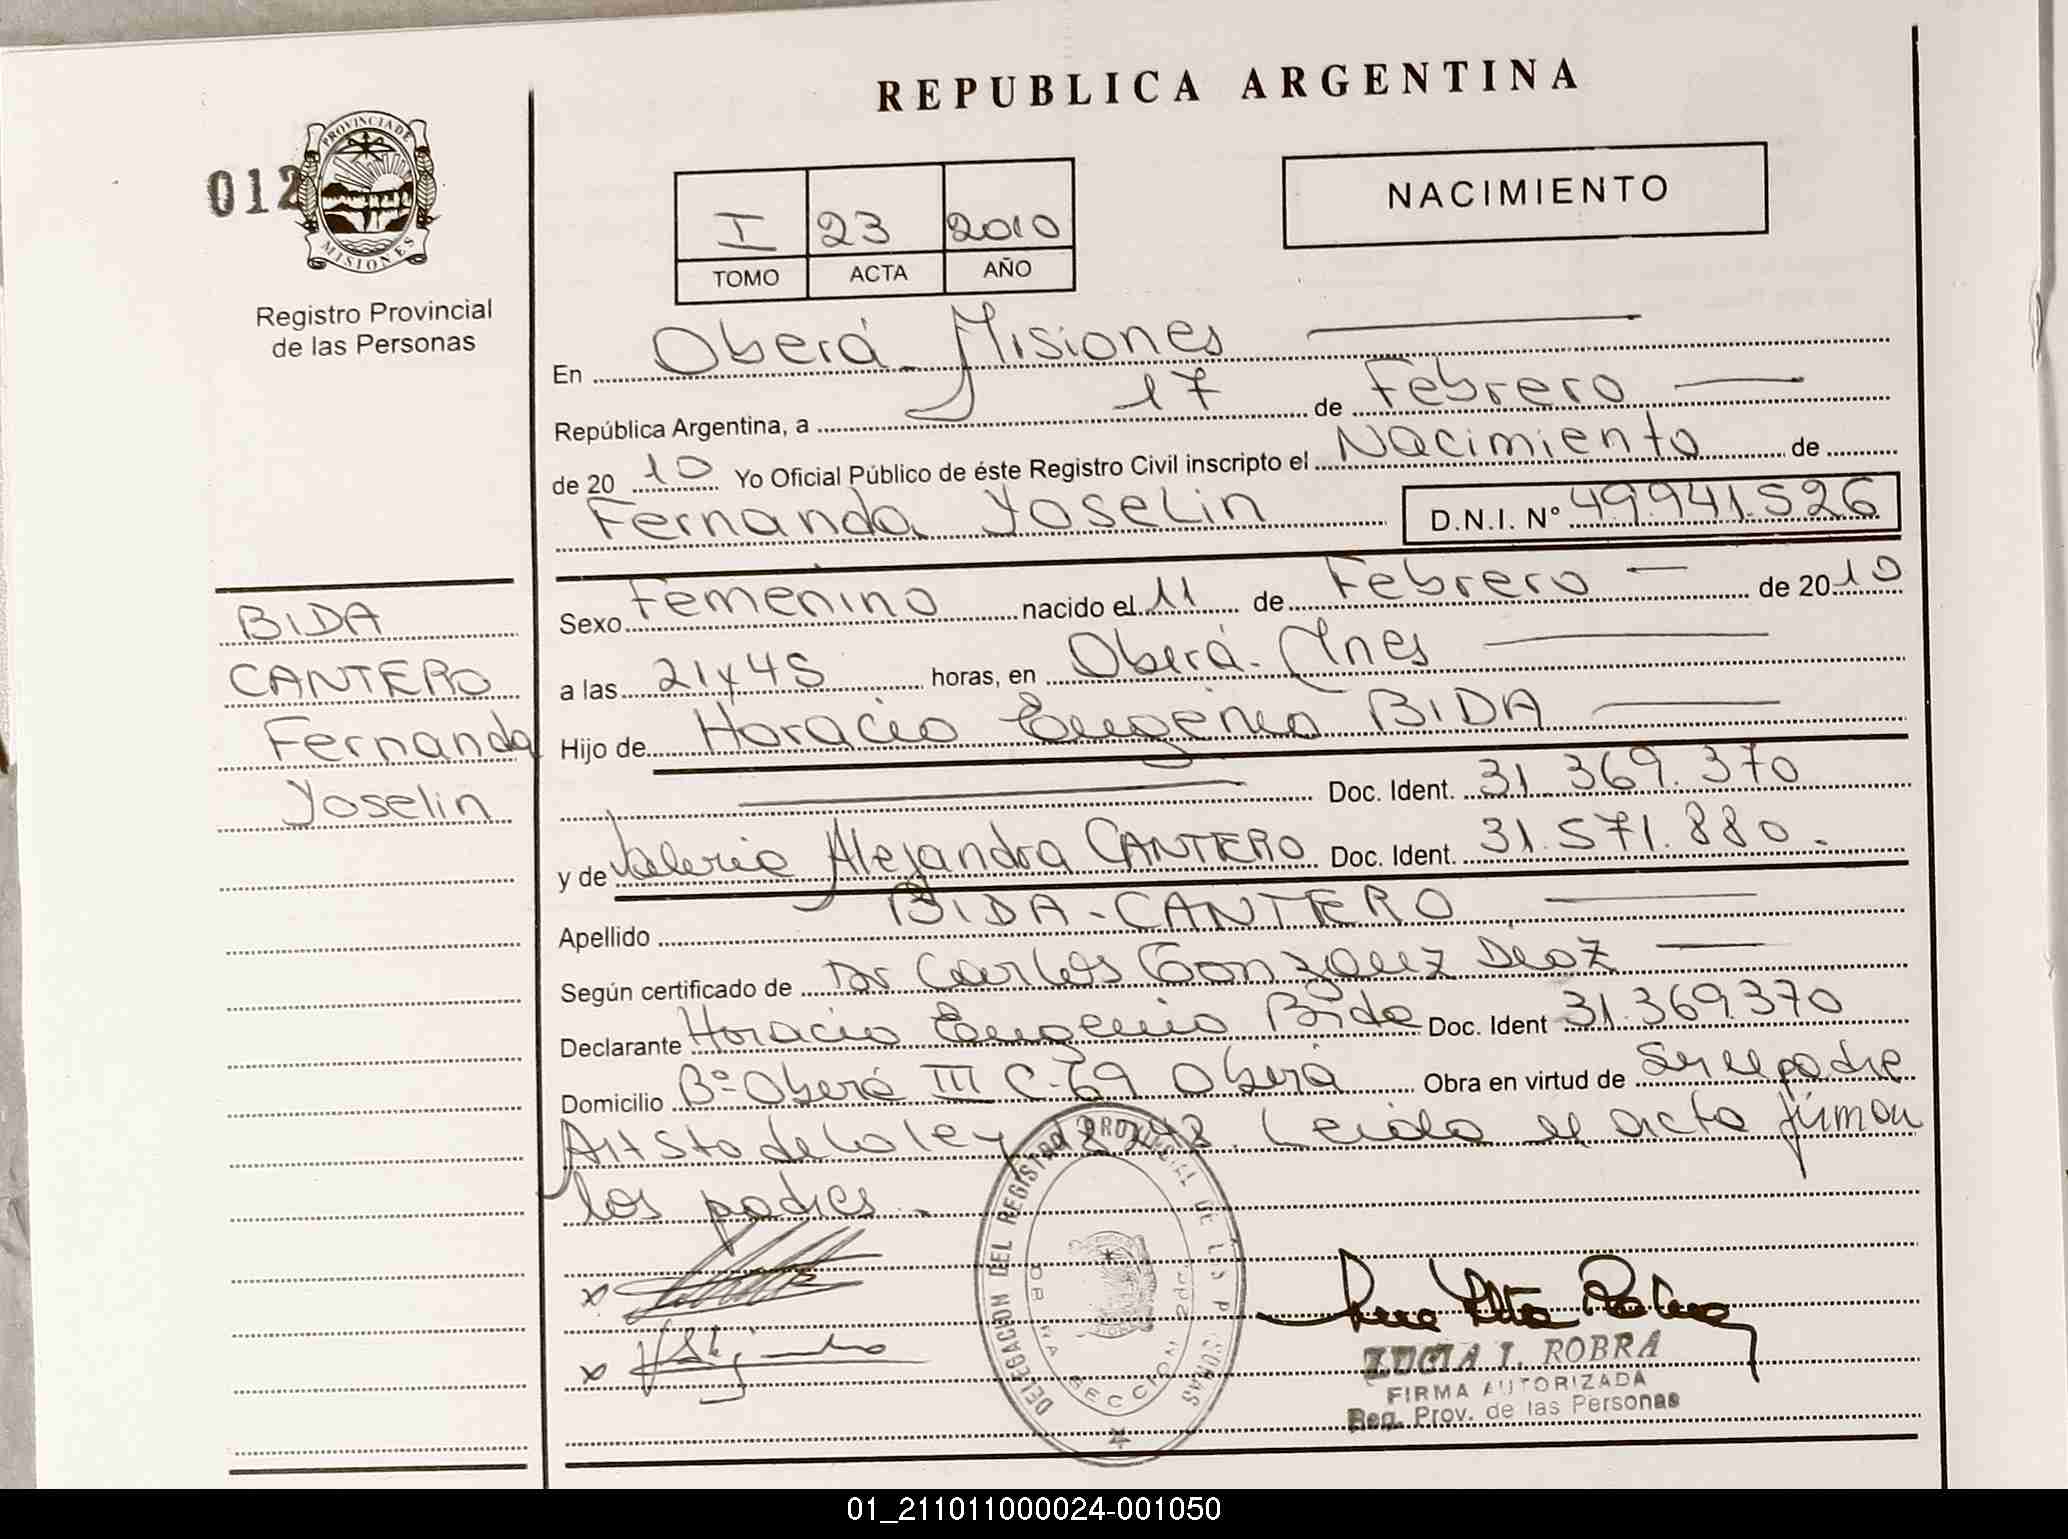 REPUBLICA ARGENTINA
012
PROVINCIA DE
MISIONES
Registro Provincial
de las Personas
I 23 2010
TOMO ACTA AÑO
NACIMIENTO
En Oberá Misiones
República Argentina, a 17 de Febrero
de 2010 Yo Oficial Público de éste Registro Civil inscripto el Nacimiento de
Fernanda Yoselin D.N.I. N° 49.941.526
BIDA
CANTERO
Fernanda
Yoselin
Sexo Femenino nacido el 11 de Febrero de 2010
a las 21 y 45 horas, en Oberá. Mnes
Hijo de Horacio Eugenio BIDA
Doc. Ident. 31.369.370
y de Valeria Alejandra CANTERO Doc. Ident. 31.571.880.
Apellido BIDA-CANTERO
Según certificado de Dr Carlos Gonzalez Diaz
Declarante Horacio Eugenio Bida Doc. Ident 31.369.370
Domicilio Bº Oberá III C-69 Oberá Obra en virtud de Ser el padre
Art 5to de la ley Leida el acta firman
los padres.
x
x
DELEGACION DEL REGISTRO PROVINCIAL DE LAS PERSONAS
SECCION 2da
LUCIA I. ROBRA
FIRMA AUTORIZADA
Reg. Prov. de las Personas
01_211011000024-001050